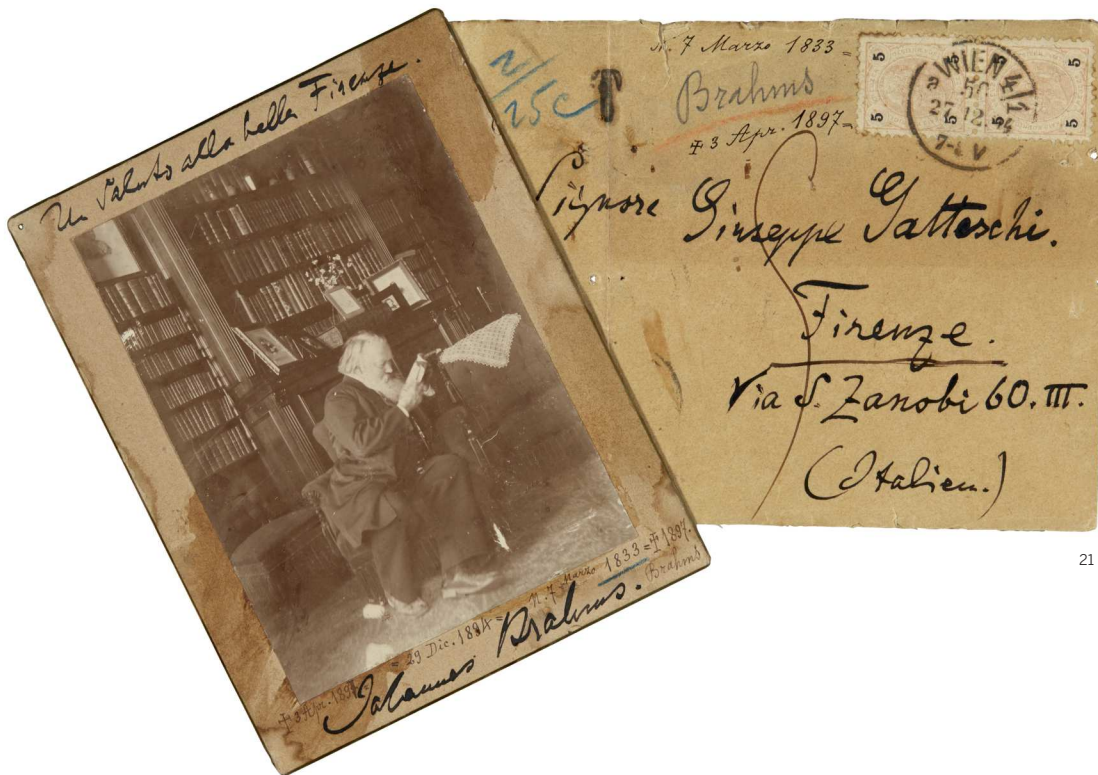 Un Saluto alla bella Firenze.
= 29 Dic. 1894 = N. 7 Marzo 1833 = † 1897.
Brahms
† 3 Apr. 1897.
Johannes Brahms.
N. 7 Marzo 1833 =
Brahms
† 3 Apr. 1897 =
25c
T
5 5 5 5
WIEN 4/1
27 12 94
Signore Giuseppe Gatteschi.
Firenze.
Via S. Zanobi 60. III.
(Italien.)
21